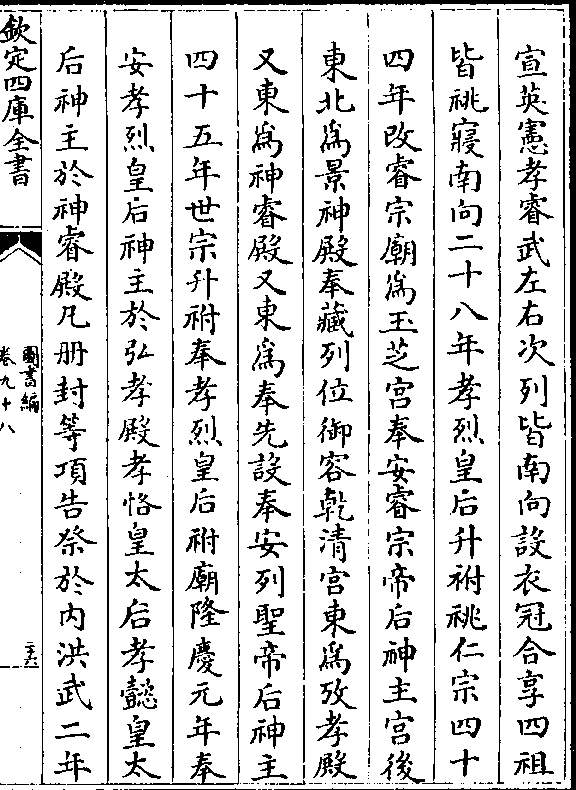 宣英憲孝睿武左右次列皆南向設衣冠合享四祖
皆祧寢南向二十八年孝烈皇后升祔祧仁宗四十
四年改睿宗廟爲玉芝宫奉安睿宗帝后神主宫後
東北爲景神殿奉藏列位御容乾清宫東爲孜孝殿
又東爲神睿殿又東爲奉先設奉安列聖帝后神主
四十五年世宗升祔奉孝烈皇后祔廟隆慶元年奉
安孝烈皇后神主於弘孝殿孝恪皇太后孝懿皇太
后神主於神睿殿凡册封等項告祭於内洪武二年
欽定四庫全書
圖書編
卷九十八
三六